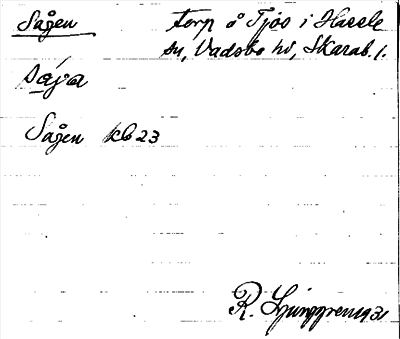 Sågen torp å Tjos i Hassle
sn, Vadsbo hd, Skarab. l.
såga
Sågen kb 23
R. Ljunggren 1931